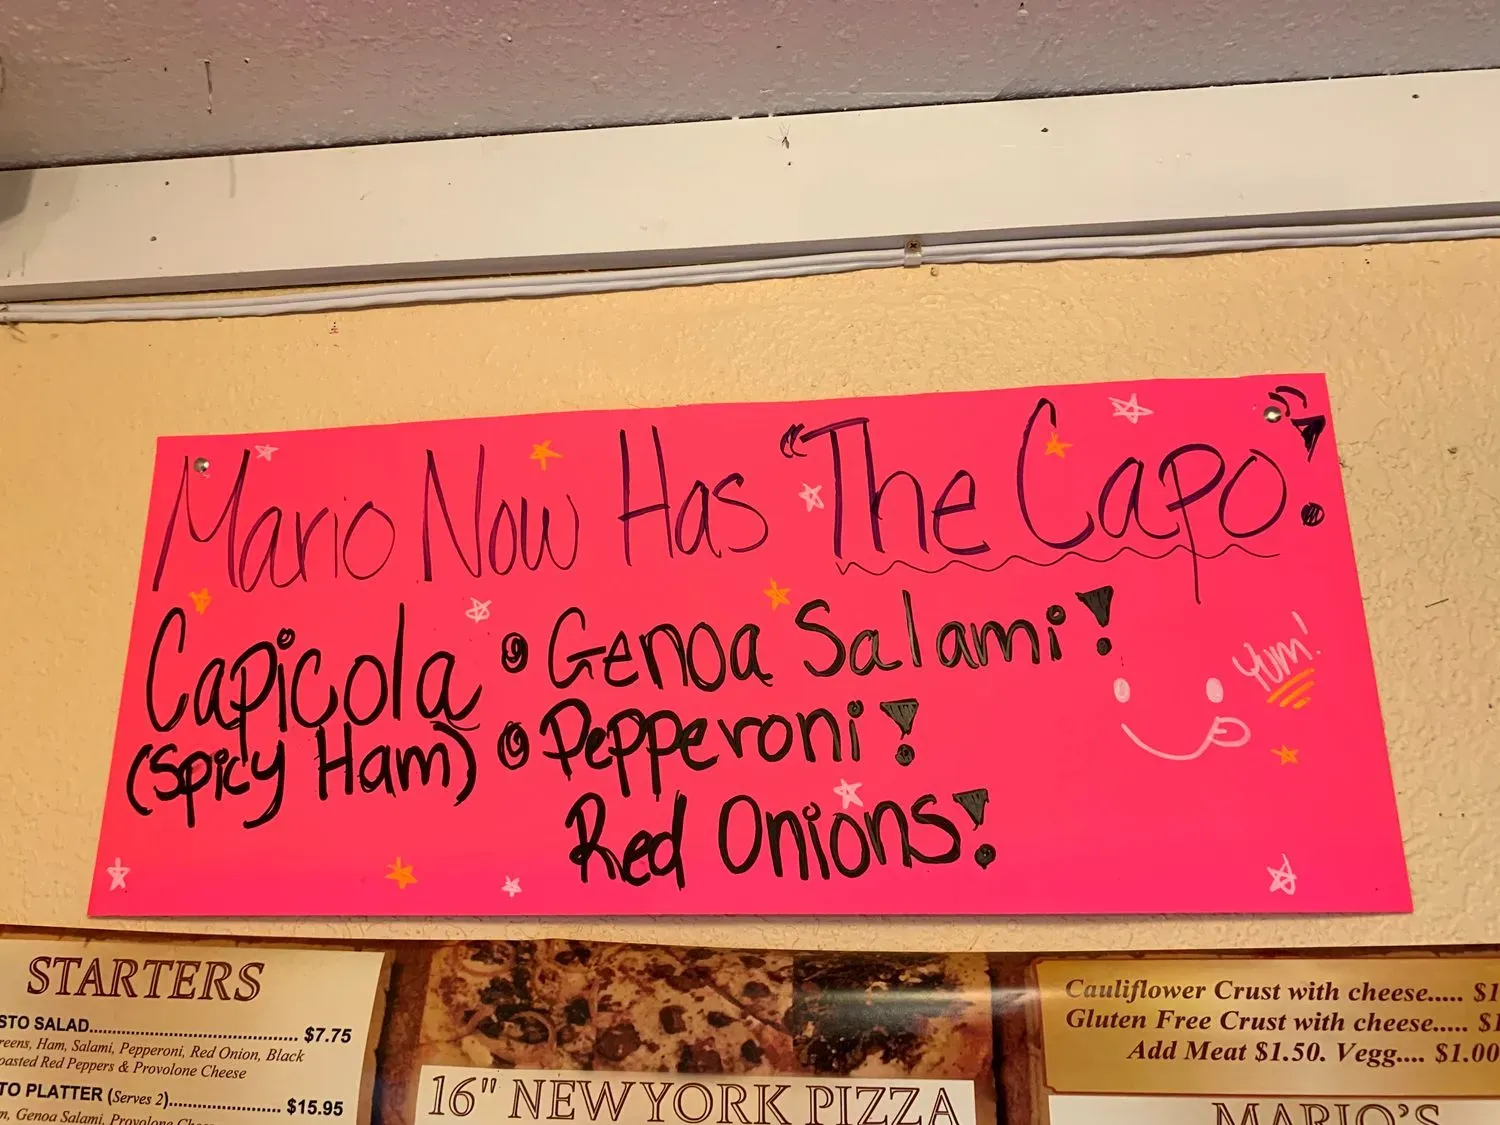 Mario Now Has "The Capo"!
Capicola • Genoa Salami!
(Spicy Ham) • Pepperoni!
Red Onions!
Yum!
STARTERS
STO SALAD ... $7.75
reens, Ham, Salami, Pepperoni, Red Onion, Black
oasted Red Peppers & Provolone Cheese
TO PLATTER (Serves 2) ... $15.95
Genoa Salami, Provolone
16" NEW YORK PIZZA
Cauliflower Crust with cheese..... $1
Gluten Free Crust with cheese..... $1
Add Meat $1.50. Vegg.... $1.00
MARIO'S